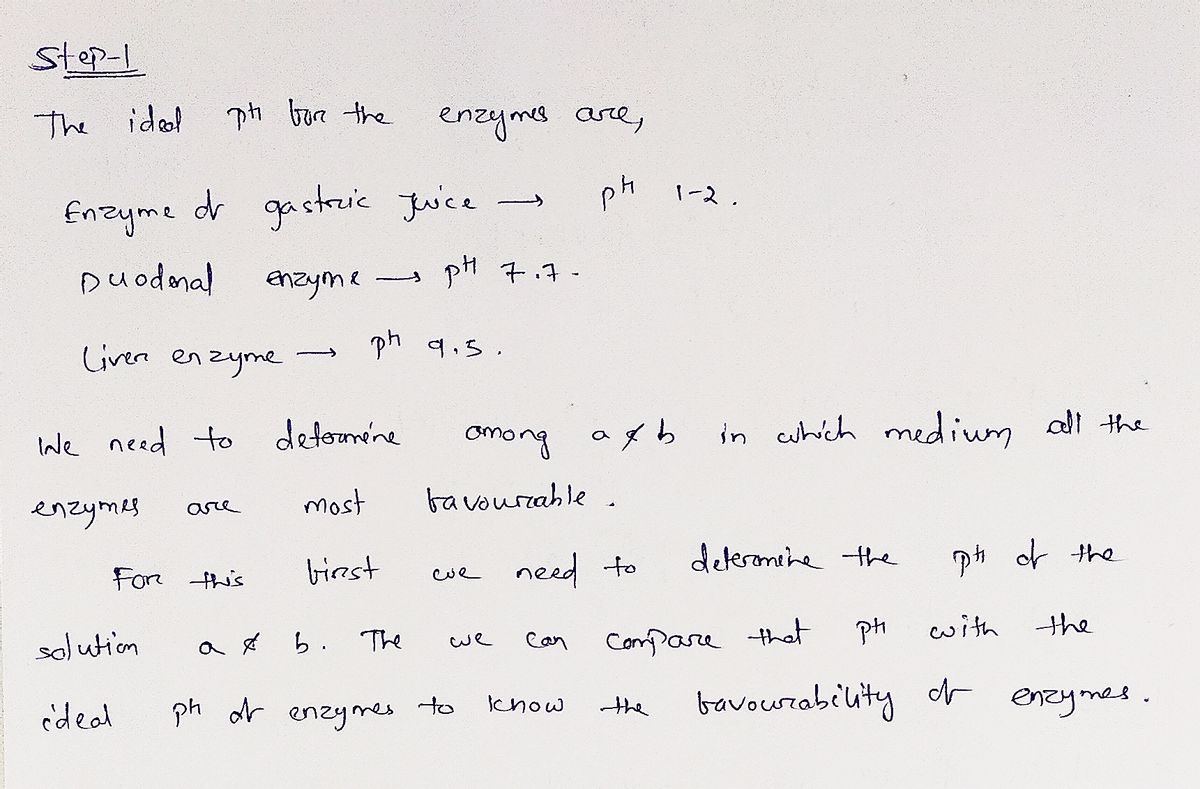 Step-1
The ideal pH for the enzymes are,
Enzyme of gastric juice → pH 1-2.
Duodenal enzyme → pH 7.7.
Liver enzyme → pH 9.5.
We need to determine among a & b in which medium all the
enzymes are most favourable.
For this first we need to determine the pH of the
solution a & b. The we can compare that pH with the
ideal pH of enzymes to know the favourability of enzymes.